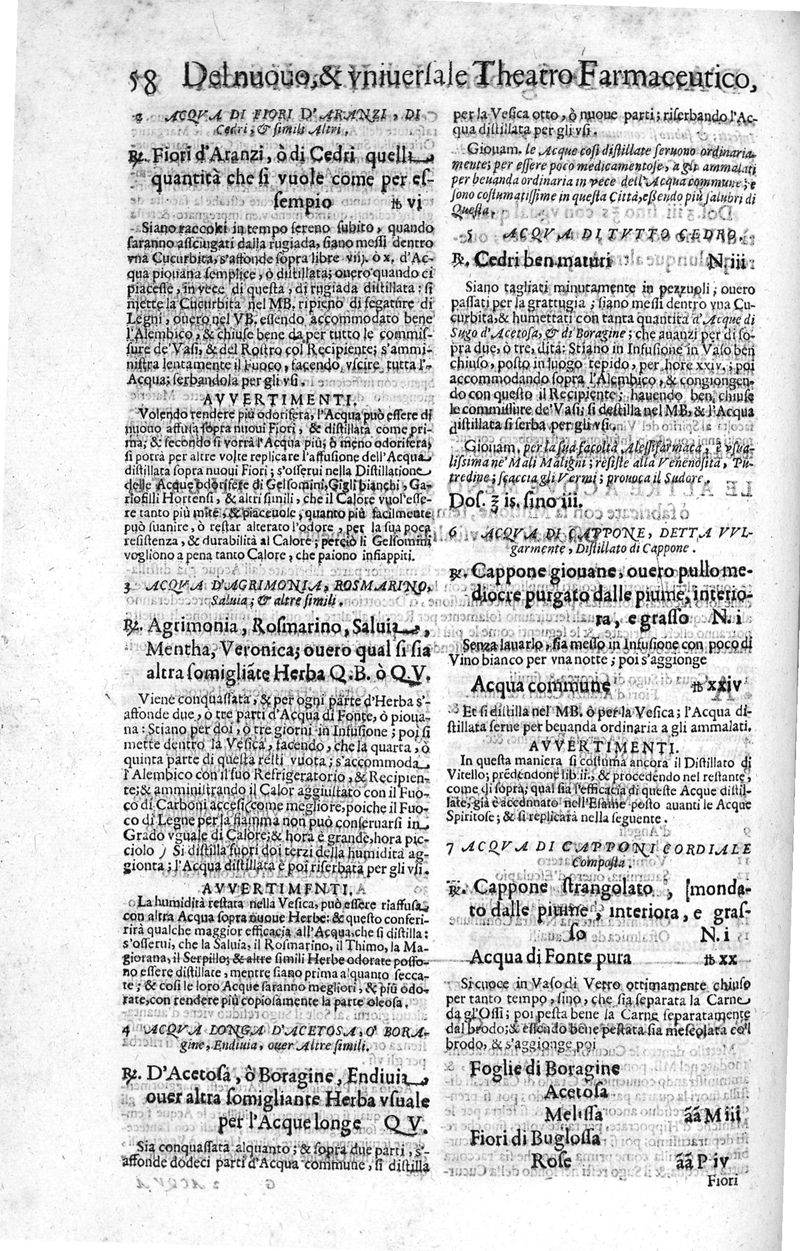 58 Del nuouo, & vniuersale Theatro Farmaceutico,
2 ACQVA DI FIORI D'ARANZI, DI
Cedri; & simili Altri.
℞. Fiori d'Aranzi, ò di Cedri quella
quantità che si vuole come per es-
sempio ℔ vi
Siano raccolti in tempo sereno subito, quando
saranno asciugati dalla rugiada, siano messi dentro
vna Cucurbita, s'affonde sopra libre viij. ò x. d'Ac-
qua piouana semplice, ò distillata; ouero quando ci
piacesse, in vece di questa, di rugiada distillata: si
mette la Cucurbita nel MB. ripieno di segature di
Legni, ouero nel VB. essendo accommodato bene
l'Alembico, & chiuse bene da per tutto le commis-
sure de' Vasi, & del Rostro col Recipiente; s'ammi-
nistra lentamente il Fuoco, facendo vscire tutta l'-
Acqua; serbandola per gli vsi.
AVVERTIMENTI.
Volendo rendere più odorifera, l'Acqua può essere di
nuouo affusa sopra nuoui Fiori, & distillata come pri-
ma; & secondo si vorrà l'Acqua più; ò meno odorifera,
si potrà per altre volte replicare l'affusione dell'Acqua
distillata sopra nuoui Fiori; s'osserui nella Distillatione
delle Acque odorifere di Gelsomini, Gigli bianchi, Ga-
riofilli Hortensi, & altri simili, che il Calore vuol'esse-
re tanto più mite, & piaceuole, quanto più facilmente
può suanire, ò restar alterato l'odore, per la sua poca
resistenza, & durabilità al Calore; perciò li Gelsomini
vogliono a pena tanto Calore, che paiono insiappiti.
3 ACQVA D'AGRIMONIA, ROSMARINO,
Saluia; & altre simili.
℞. Agrimonia, Rosmarino, Saluia,
Mentha, Veronica; ouero qual si sia
altra somigliãte Herba Q.B. ò Q.V.
Viene conquassata, & per ogni parte d'Herba s'-
affonde due, ò tre parti d'Acqua di Fonte, ò pioua-
na: Stiano per doi, ò tre giorni in Infusione; poi si
mette dentro la Vesica, facendo, che la quarta, ò
quinta parte di questa resti vuota; s'accommoda
l'Alembico con il suo Refrigeratorio, & Recipien-
te; & amministrando il Calor aggiustato con il Fuo-
co di Carboni accesi, come megliore, poiche il Fuo-
co di Legne per la fiamma non può conseruarsi in
Grado vguale di Calore; & hora è grande, hora pic-
ciolo) Si distilla fuori doi terzi della humidità ag-
gionta; l'Acqua distillata è poi riserbata per gli vsi.
AVVERTIMENTI.
La humidità restata nella Vesica, può essere riaffusa
con altra Acqua sopra nuoue Herbe: & questo conferi-
rirà qualche maggior efficacia all'Acqua, che si distilla:
s'osserui, che la Saluia, il Rosmarino, il Thimo, la Ma-
giorana, il Serpillo; & altre simili Herbe odorate posso-
no essere distillate, mentre siano prima alquanto secca-
te; & così le loro Acque saranno megliori, & più odo-
rate, con rendere più copiosamente la parte oleosa.
4 ACQVA LONGA D'ACETOSA, O' BORA-
gine, Endiuia, ouer Altre simili.
℞. D'Acetosa, ò Boragine, Endiuia,
ouer altra somigliante Herba vsuale
per l'Acque longe Q.V.
Sia conquassata alquanto; & sopra due parti, s'-
affonde dodeci parti d'Acqua commune, si distilla
per la Vesica otto, ò nuoue parti; riserbando l'Ac-
qua distillata per gli vsi.
Giouam. le Acque così distillate seruono ordinaria-
mente; per essere poco medicamentose, a gli ammalati
per beuanda ordinaria in vece dell'Acqua commune; e
sono costumatissime in questa Città, essendo più salubri di
Questa.
5 ACQVA DI TVTTO CEDRO.
℞. Cedri ben maturi N. iii
Siano tagliati minutamente in pezzuoli; ouero
passati per la grattugia; siano messi dentro vna Cu-
curbita, & humettati con tanta quantità d'Acque di
Sugo d'Acetosa, & di Boragine; che auanzi per di so-
pra due, ò tre, dita: Stiano in Infusione in Vaso ben
chiuso, posto in luogo tepido, per hore xxiv. poi
accommodando sopra l'Alembico, & congiongen-
do con questo il Recipiente; hauendo ben, chiuse
le commissure de' Vasi; si destilla nel MB. & l'Acqua
distillata si serba per gli vsi.
Giouam. per la sua facoltà Alessifarmaca, è vsua-
lissima ne' Mali Maligni; resiste alla Venenosità, Pu-
tredine; scaccia gli Vermi; prouoca il Sudore.
Dos. ʒ is. sino iii.
6 ACQVA DI CAPPONE, DETTA VVL-
garmente, Distillato di Cappone.
℞. Cappone giouane, ouero pullo me-
diocre purgato dalle piume, interio-
ra, e grasso N. i
Senza lauarlo, sia messo in Infusione con poco di
Vino bianco per vna notte; poi s'aggionge
Acqua commune ℔ xxiv
Et si distilla nel MB. ò per la Vesica; l'Acqua di-
stillata serue per beuanda ordinaria a gli ammalati.
AVVERTIMENTI.
In questa maniera si costuma ancora il Distillato di
Vitello; prendendone lib. ii., & procedendo nel restante,
come di sopra; qual sia l'efficacia di queste Acque distil-
late, già è accennato nell'Esame posto auanti le Acque
Spiritose; & si replicarà nella seguente.
7 ACQVA DI CAPPONI CORDIALE
Composta.
℞. Cappone strangolato, monda-
to dalle piume, interiora, e gras-
so N. i
Acqua di Fonte pura ℔ xx
Si cuoce in Vaso di Vetro ottimamente chiuso
per tanto tempo, sino, che sia separata la Carne
da gl'Ossi; poi pesta bene la Carne separatamente
dal brodo; & essendo bene pestata sia mescolata col
brodo, & s'aggionge poi
Foglie di Boragine
Acetosa
Melissa ãã M iii
Fiori di Buglossa
Rose ãã P iv
Fiori